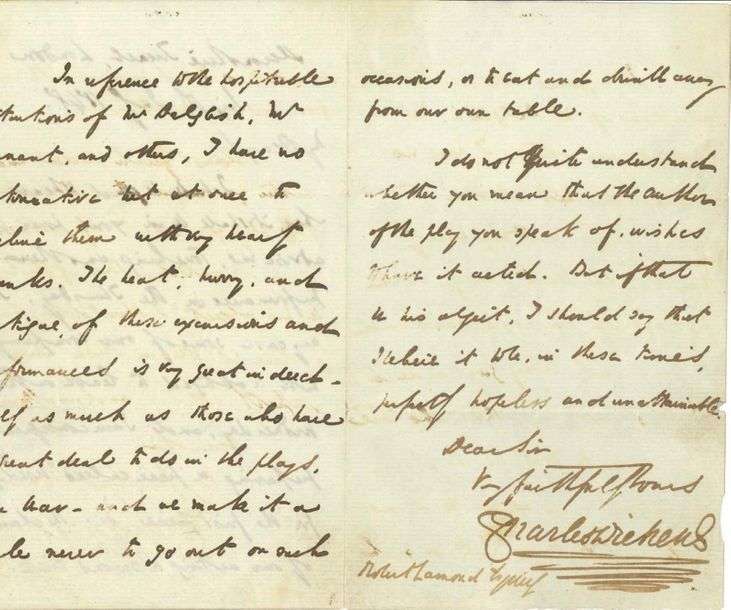 In reference to the hospitable
tations of Mr Dalglish, Mr
nant, and others, I have no
ternative but at once to
cline them with my hearty
anks. The heat, hurry, and
tigue, of these excursions and
formances is very great indeed –
lf as much as those who have
great deal to do in the plays,
bear – and we make it a
le never to go out on such
occasions, or to eat and drink away
from our own table.
I do not quite understand
whether you mean that the author
of the play you speak of, wishes
to have it acted. But if that
is his object, I should say that
I believe it to be, in these times,
perfectly hopeless and unattainable.
Dear Sir
Very faithfully Yours
Charles Dickens
Robert Lamond Esquire